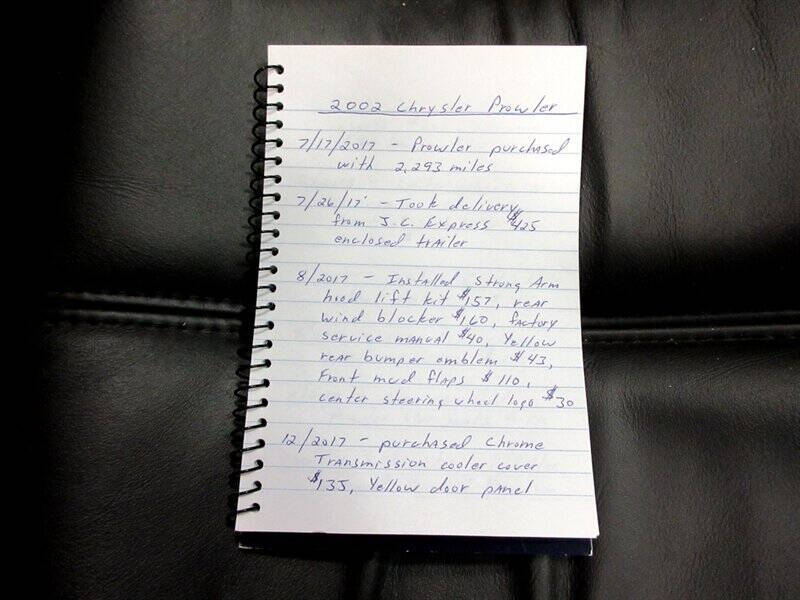 2002 Chrysler Prowler
7/17/2017 - Prowler purchased
with 2,293 miles
7/26/17 - Took delivery
from J.C. Express $425
enclosed trailer
8/2017 - Installed Strong Arm
hood lift kit $157, rear
wind blocker $160, factory
service manual $40, Yellow
rear bumper emblem $43,
Front mud flaps $110,
center steering wheel logo $30
12/2017 - purchased Chrome
Transmission cooler cover
$135, Yellow door panel